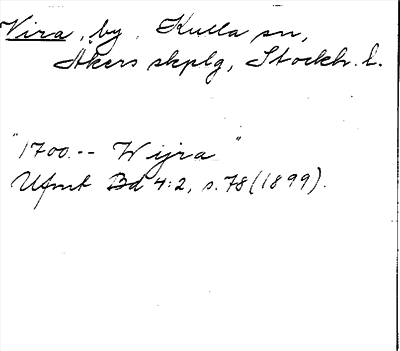 Vira, by, Kulla sn,
Åkers skplg, Stockh. l.
"1700 -- Wijra"
Ufmt Bd 4:2, s. 78 (1899).